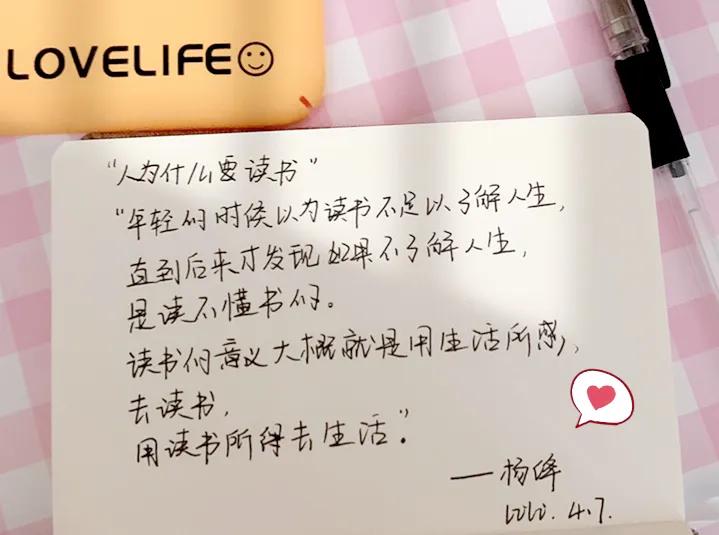 LOVELIFE
“人为什么要读书”
“年轻的时候以为读书不足以了解人生,
直到后来才发现如果不了解人生,
是读不懂书的。
读书的意义大概就是用生活所感,
去读书,
用读书所得去生活”。
——杨绛
2020.4.7.